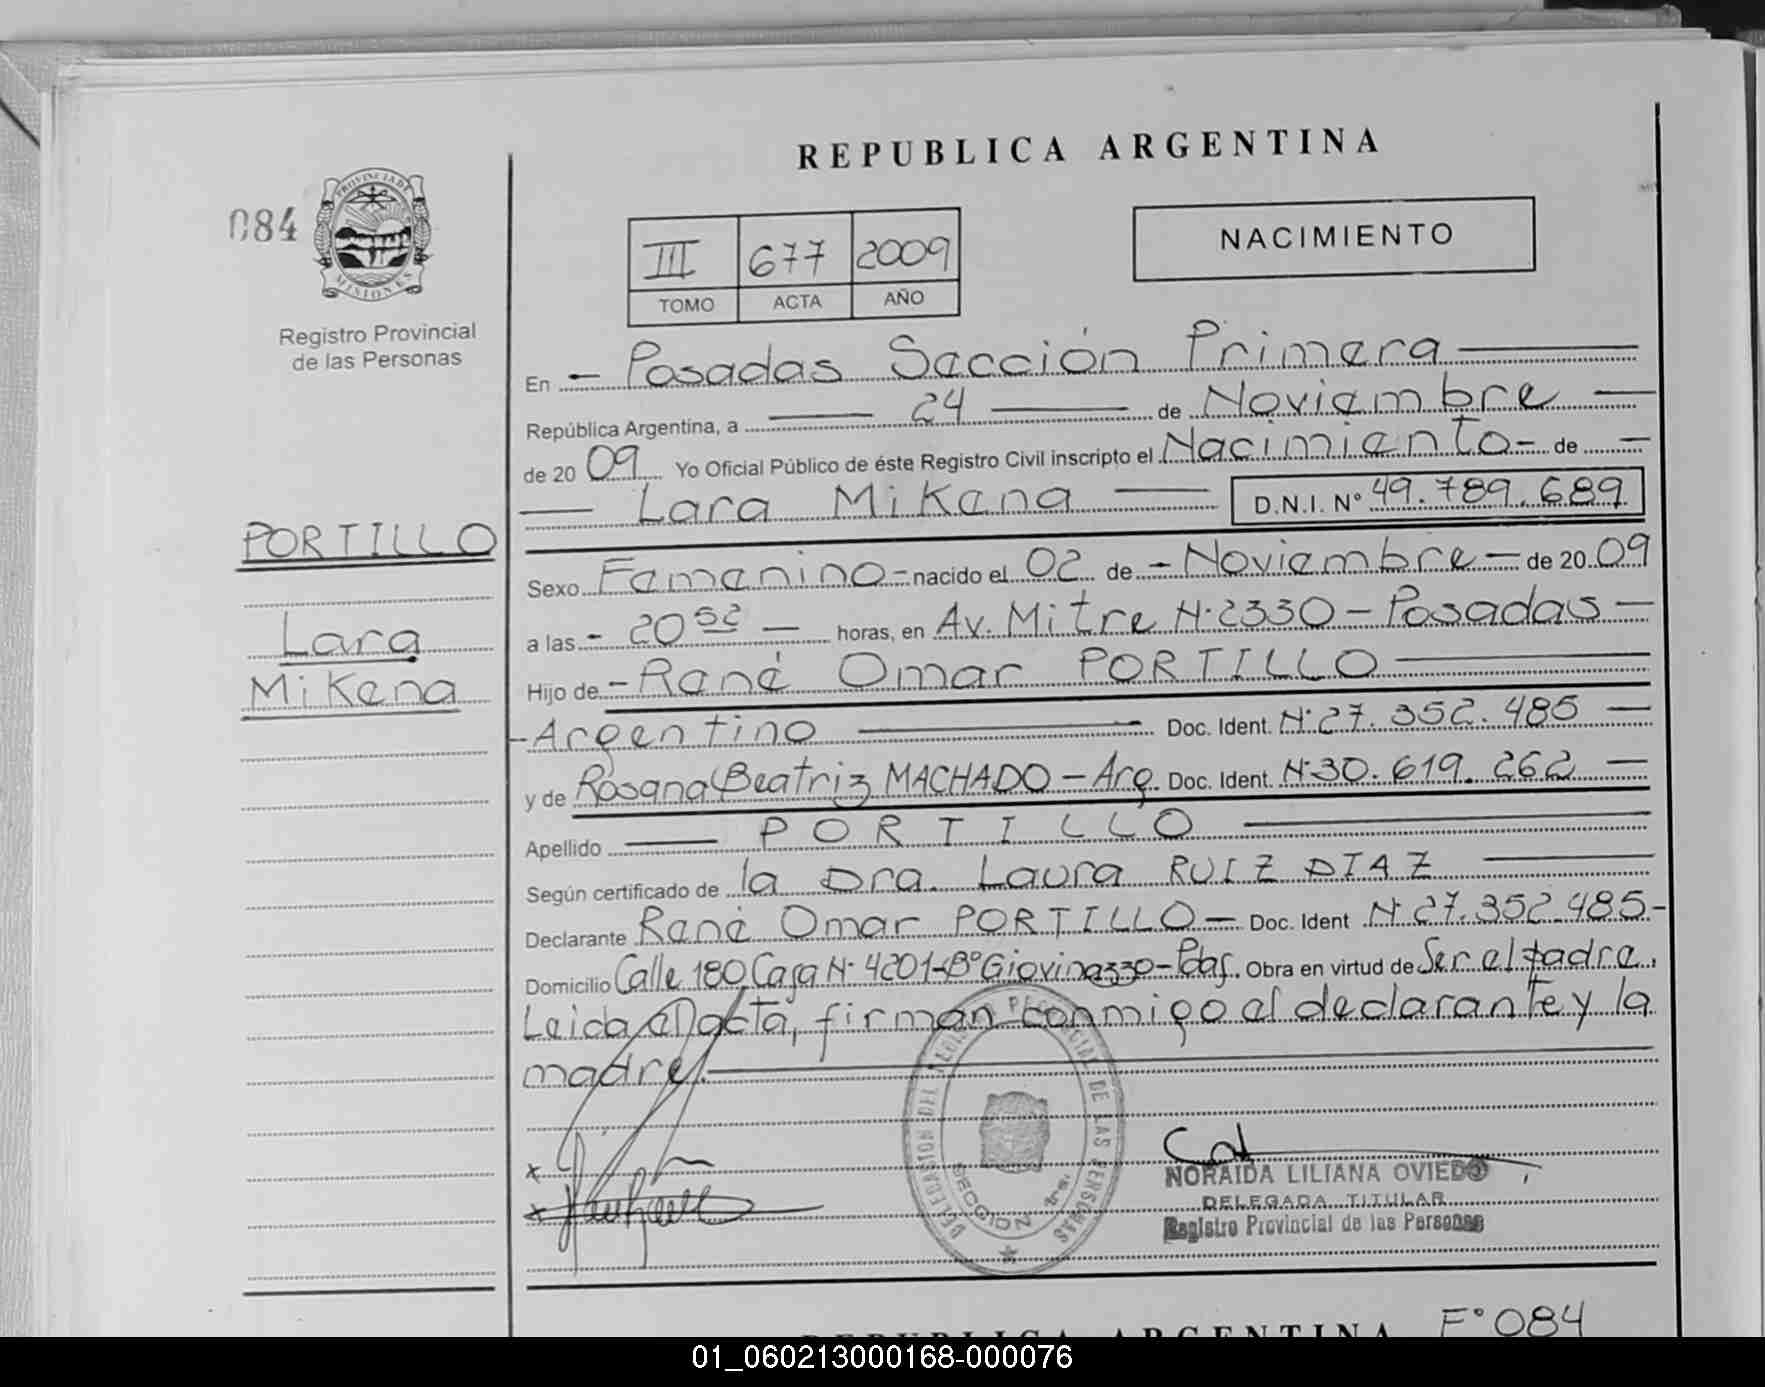 REPUBLICA ARGENTINA
084
PROVINCIA DE MISIONES
Registro Provincial
de las Personas
III 677 2009
TOMO ACTA AÑO
NACIMIENTO
En - Posadas Sección Primera
República Argentina, a 24 de Noviembre
de 2009 Yo Oficial Público de éste Registro Civil inscripto el Nacimiento - de -
Lara Mikena D.N.I. Nº 49.789.689
PORTILLO
Lara
Mikena
Sexo Femenino - nacido el 02 de - Noviembre - de 2009
a las - 20 52 - horas, en Av. Mitre N° 2330 - Posadas -
Hijo de - René Omar PORTILLO
- Argentino Doc. Ident. N° 27.352.485 -
y de Rosana Beatriz MACHADO - Arg. Doc. Ident. N° 30.619.262 -
Apellido PORTILLO
Según certificado de la Dra. Laura RUIZ DIAZ
Declarante René Omar PORTILLO - Doc. Ident N° 27.352.485 -
Domicilio Calle 180 Casa N° 4201 - B° Giovinazzo - Pdas. Obra en virtud de Ser el padre.
Leida el acta, firman conmigo el declarante y la
madre.
x
x
DELEGACION DEL REGISTRO PROVINCIAL DE LAS PERSONAS
SECCION 1ra.
NORAIDA LILIANA OVIEDO
DELEGADA TITULAR
Registro Provincial de las Personas
REPUBLICA ARGENTINA F° 084
01_060213000168-000076